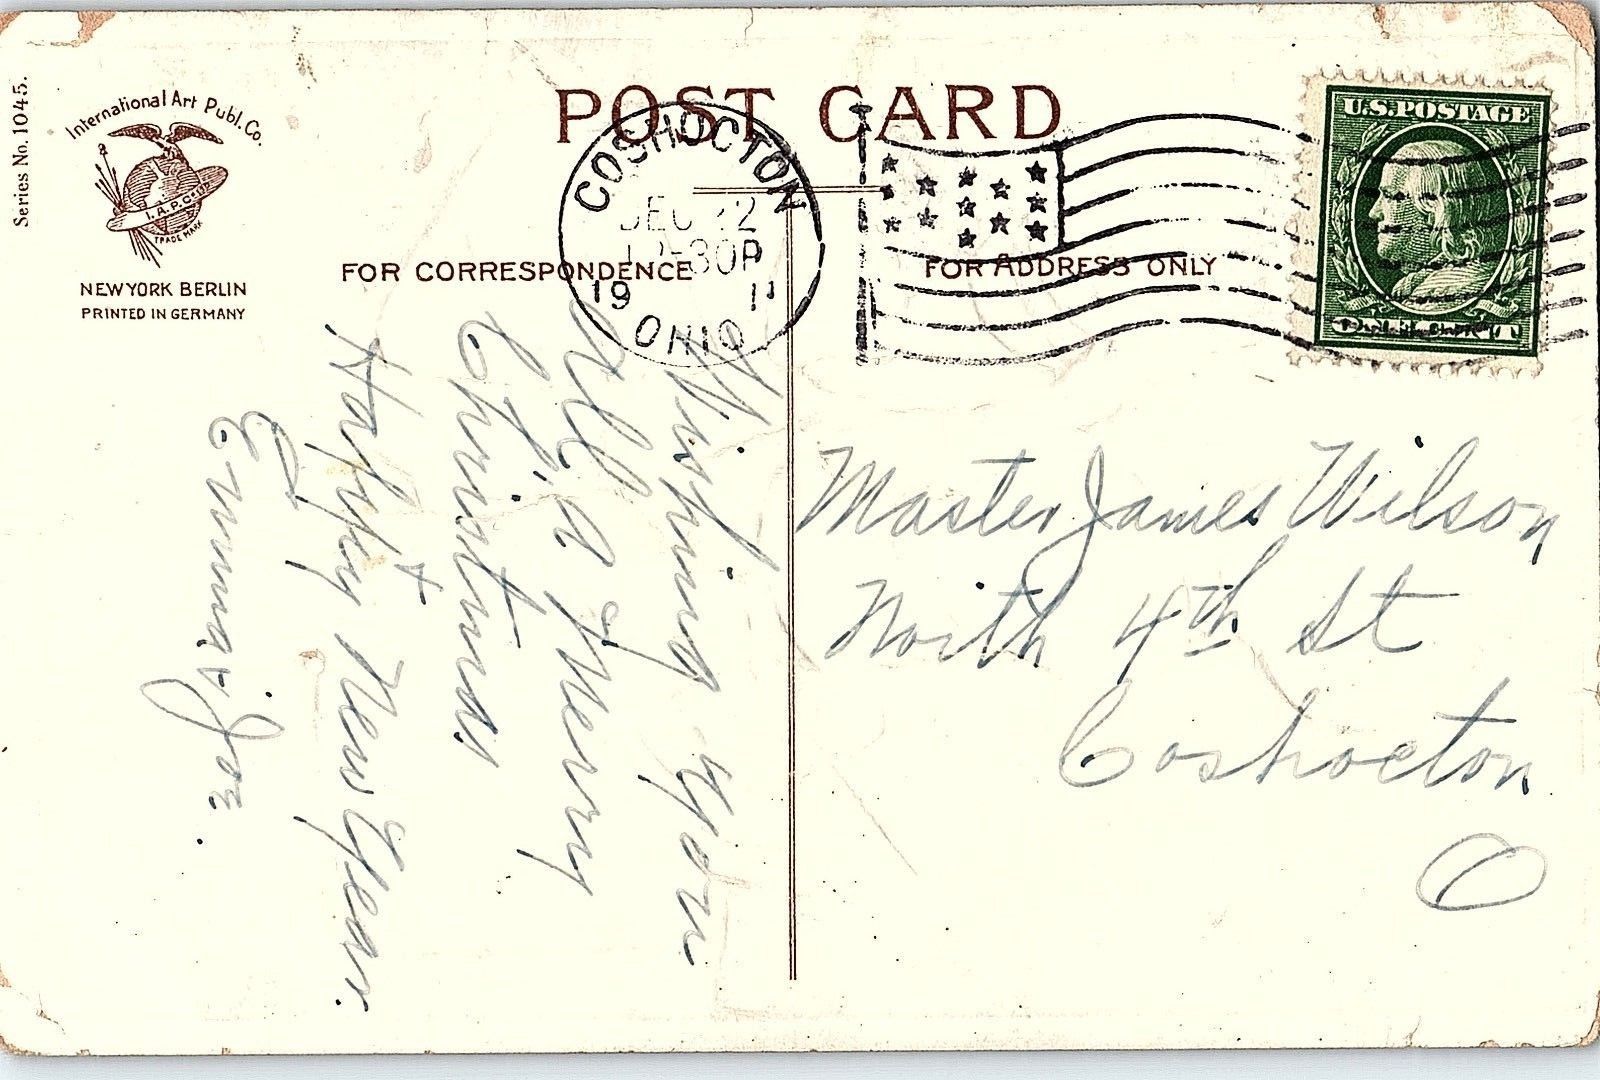 Series No. 1045.
International Art Publ. Co.
I.A.P.Co.
TRADE MARK
NEW YORK BERLIN
PRINTED IN GERMANY
POST CARD
FOR CORRESPONDENCE
FOR ADDRESS ONLY
COSHOCTON
DEC 22
12-30P
19 11
OHIO
U.S. POSTAGE
Wishing you
All a Merry
Christmas
+
Happy New Year.
Emma
Master James Wilson
North 4th St
Coshocton
O